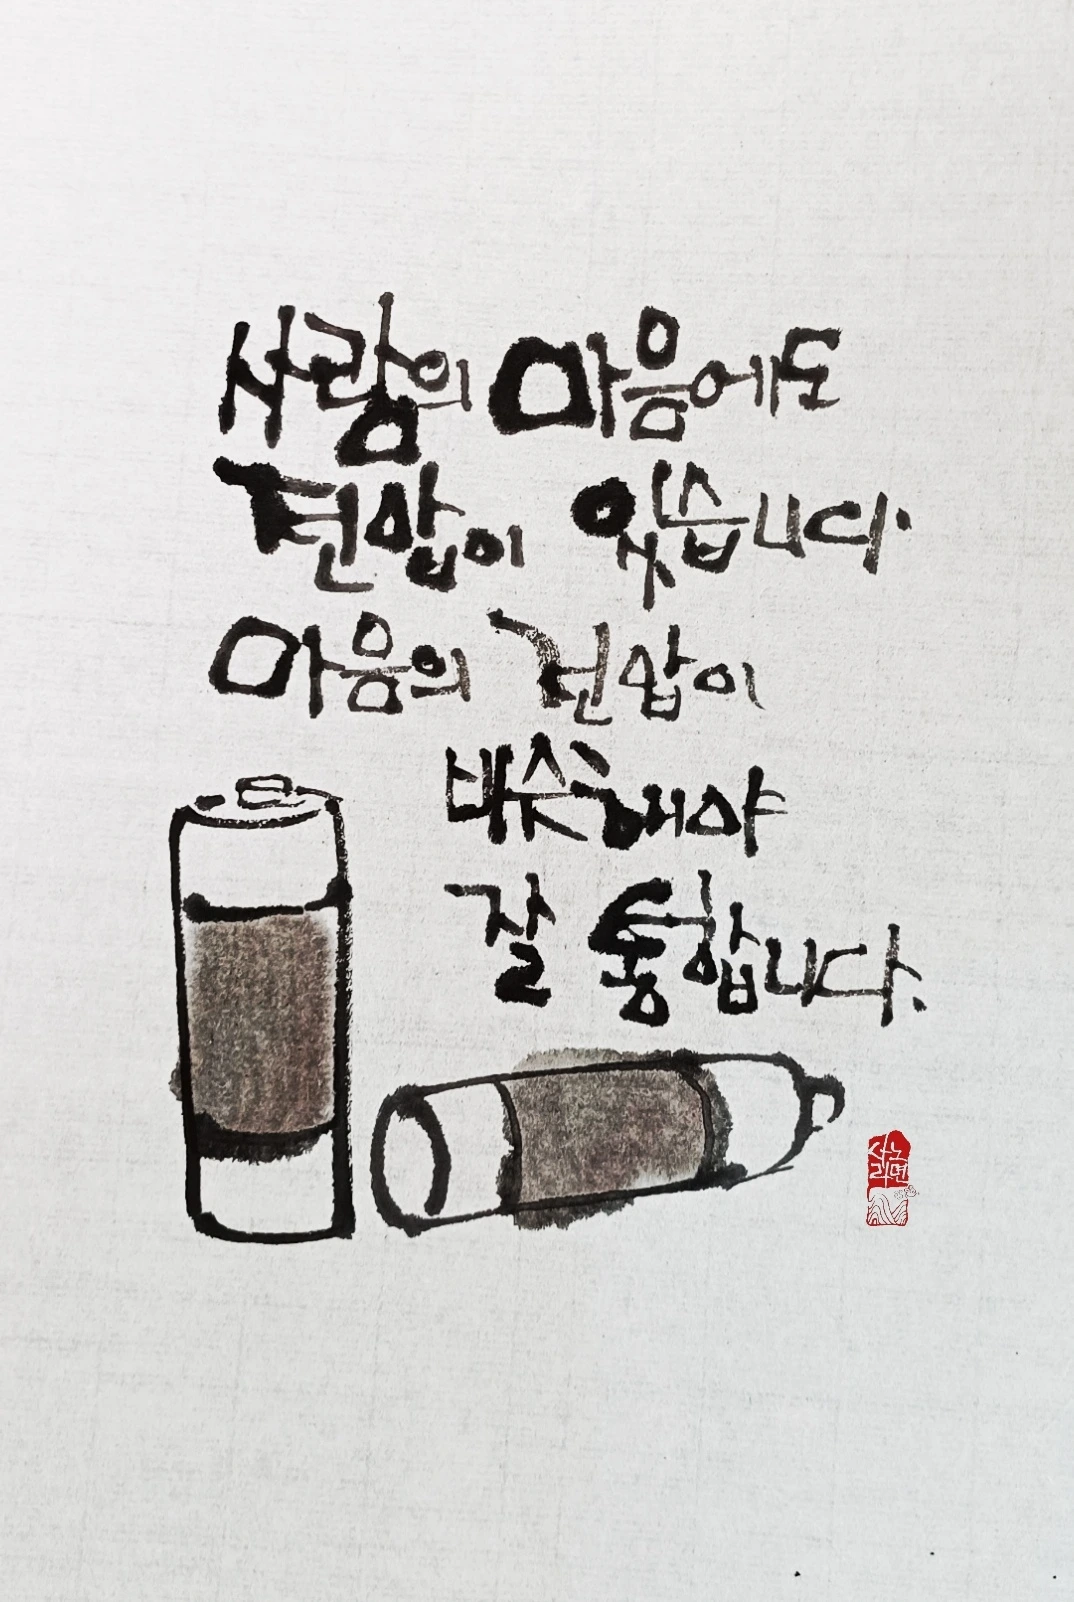 사랑의 마음에도
전압이 있습니다.
마음의 전압이
비슷해야
잘 통합니다.